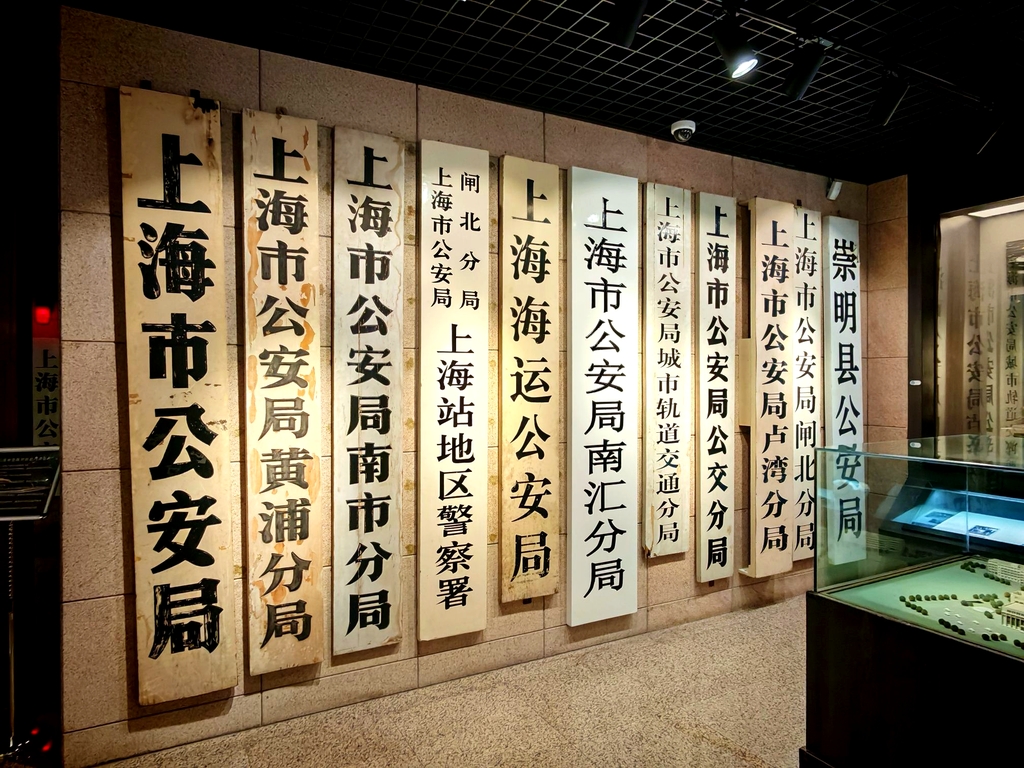 上海市公安局
上海市公安局黄浦分局
上海市公安局南市分局
上海市公安局
闸北分局
上海站地区警察署
上海海运公安局
上海市公安局南汇分局
上海市公安局城市轨道交通分局
上海市公安局公交分局
上海市公安局卢湾分局
上海市公安局闸北分局
崇明县公安局
上海市公